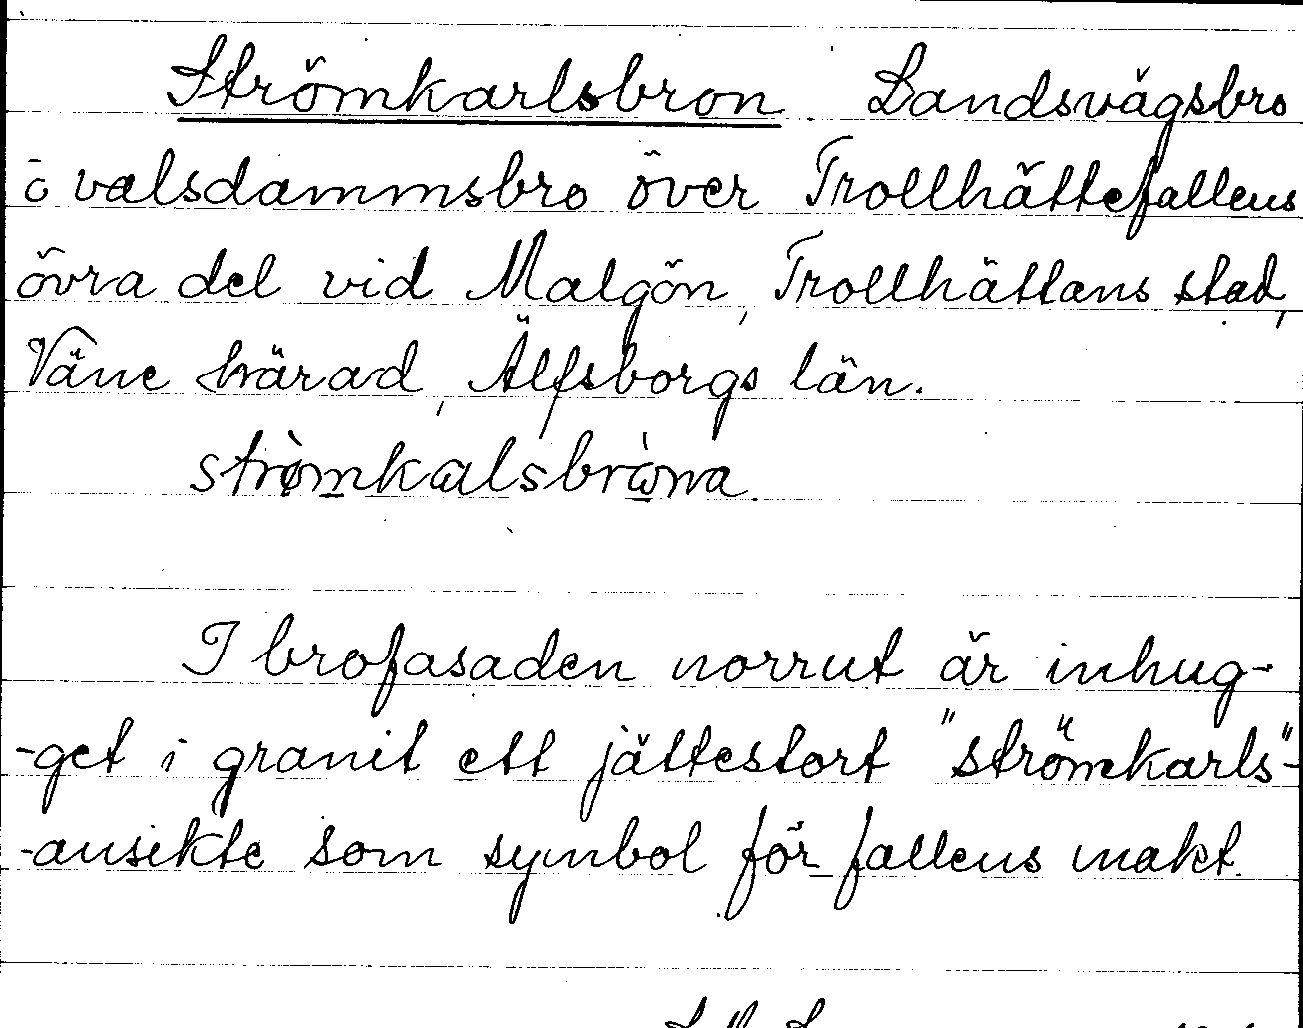 Strömkarlsbron. Landsvägsbro
o valsdammsbro över Trollhättefallens
övra del vid Malgön, Trollhättans stad,
Väne härad, Älfsborgs län.
I brofasaden norrut är inhug-
-get i granit ett jättestort "strömkarls"-
-ansikte som symbol för fallens makt.